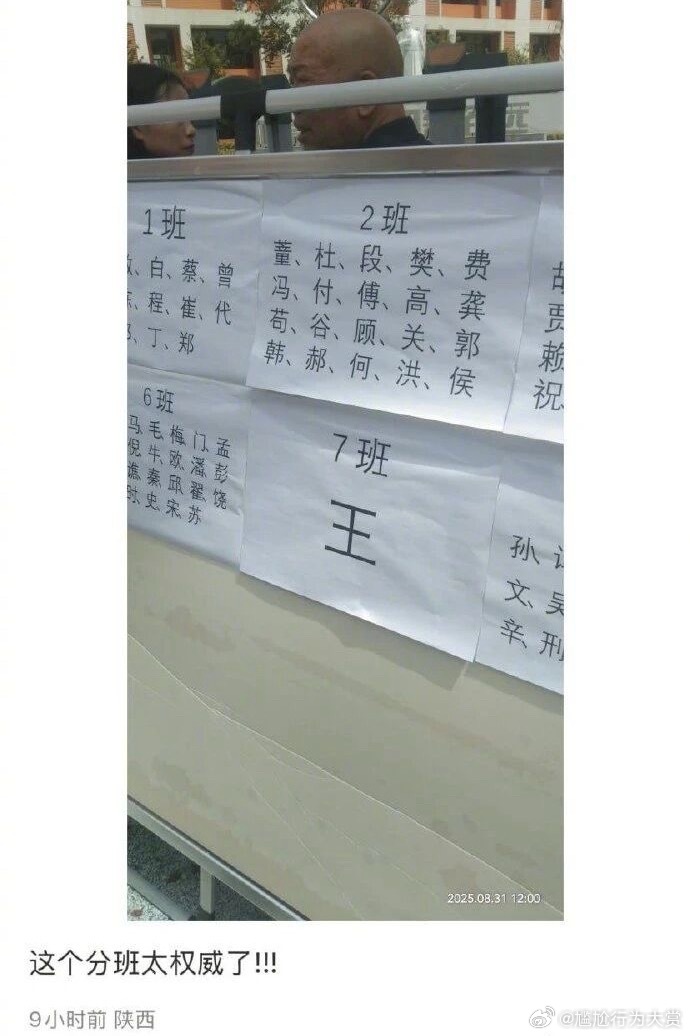 1班
、白、蔡、曾
、程、崔、代
、丁、郑
2班
董、杜、段、樊、费
冯、付、傅、高、龚
苟、谷、顾、关、郭
韩、郝、何、洪、侯
胡
贾
赖
祝
6班
马、毛、梅、门、孟
倪、牛、欧、潘、彭
谯、秦、邱、翟、饶
时、史、宋、苏
7班
王
孙、
文、吴
辛、刑
2025.08.31 12:00
这个分班太权威了!!!
9小时前 陕西
@尴尬行为大赏